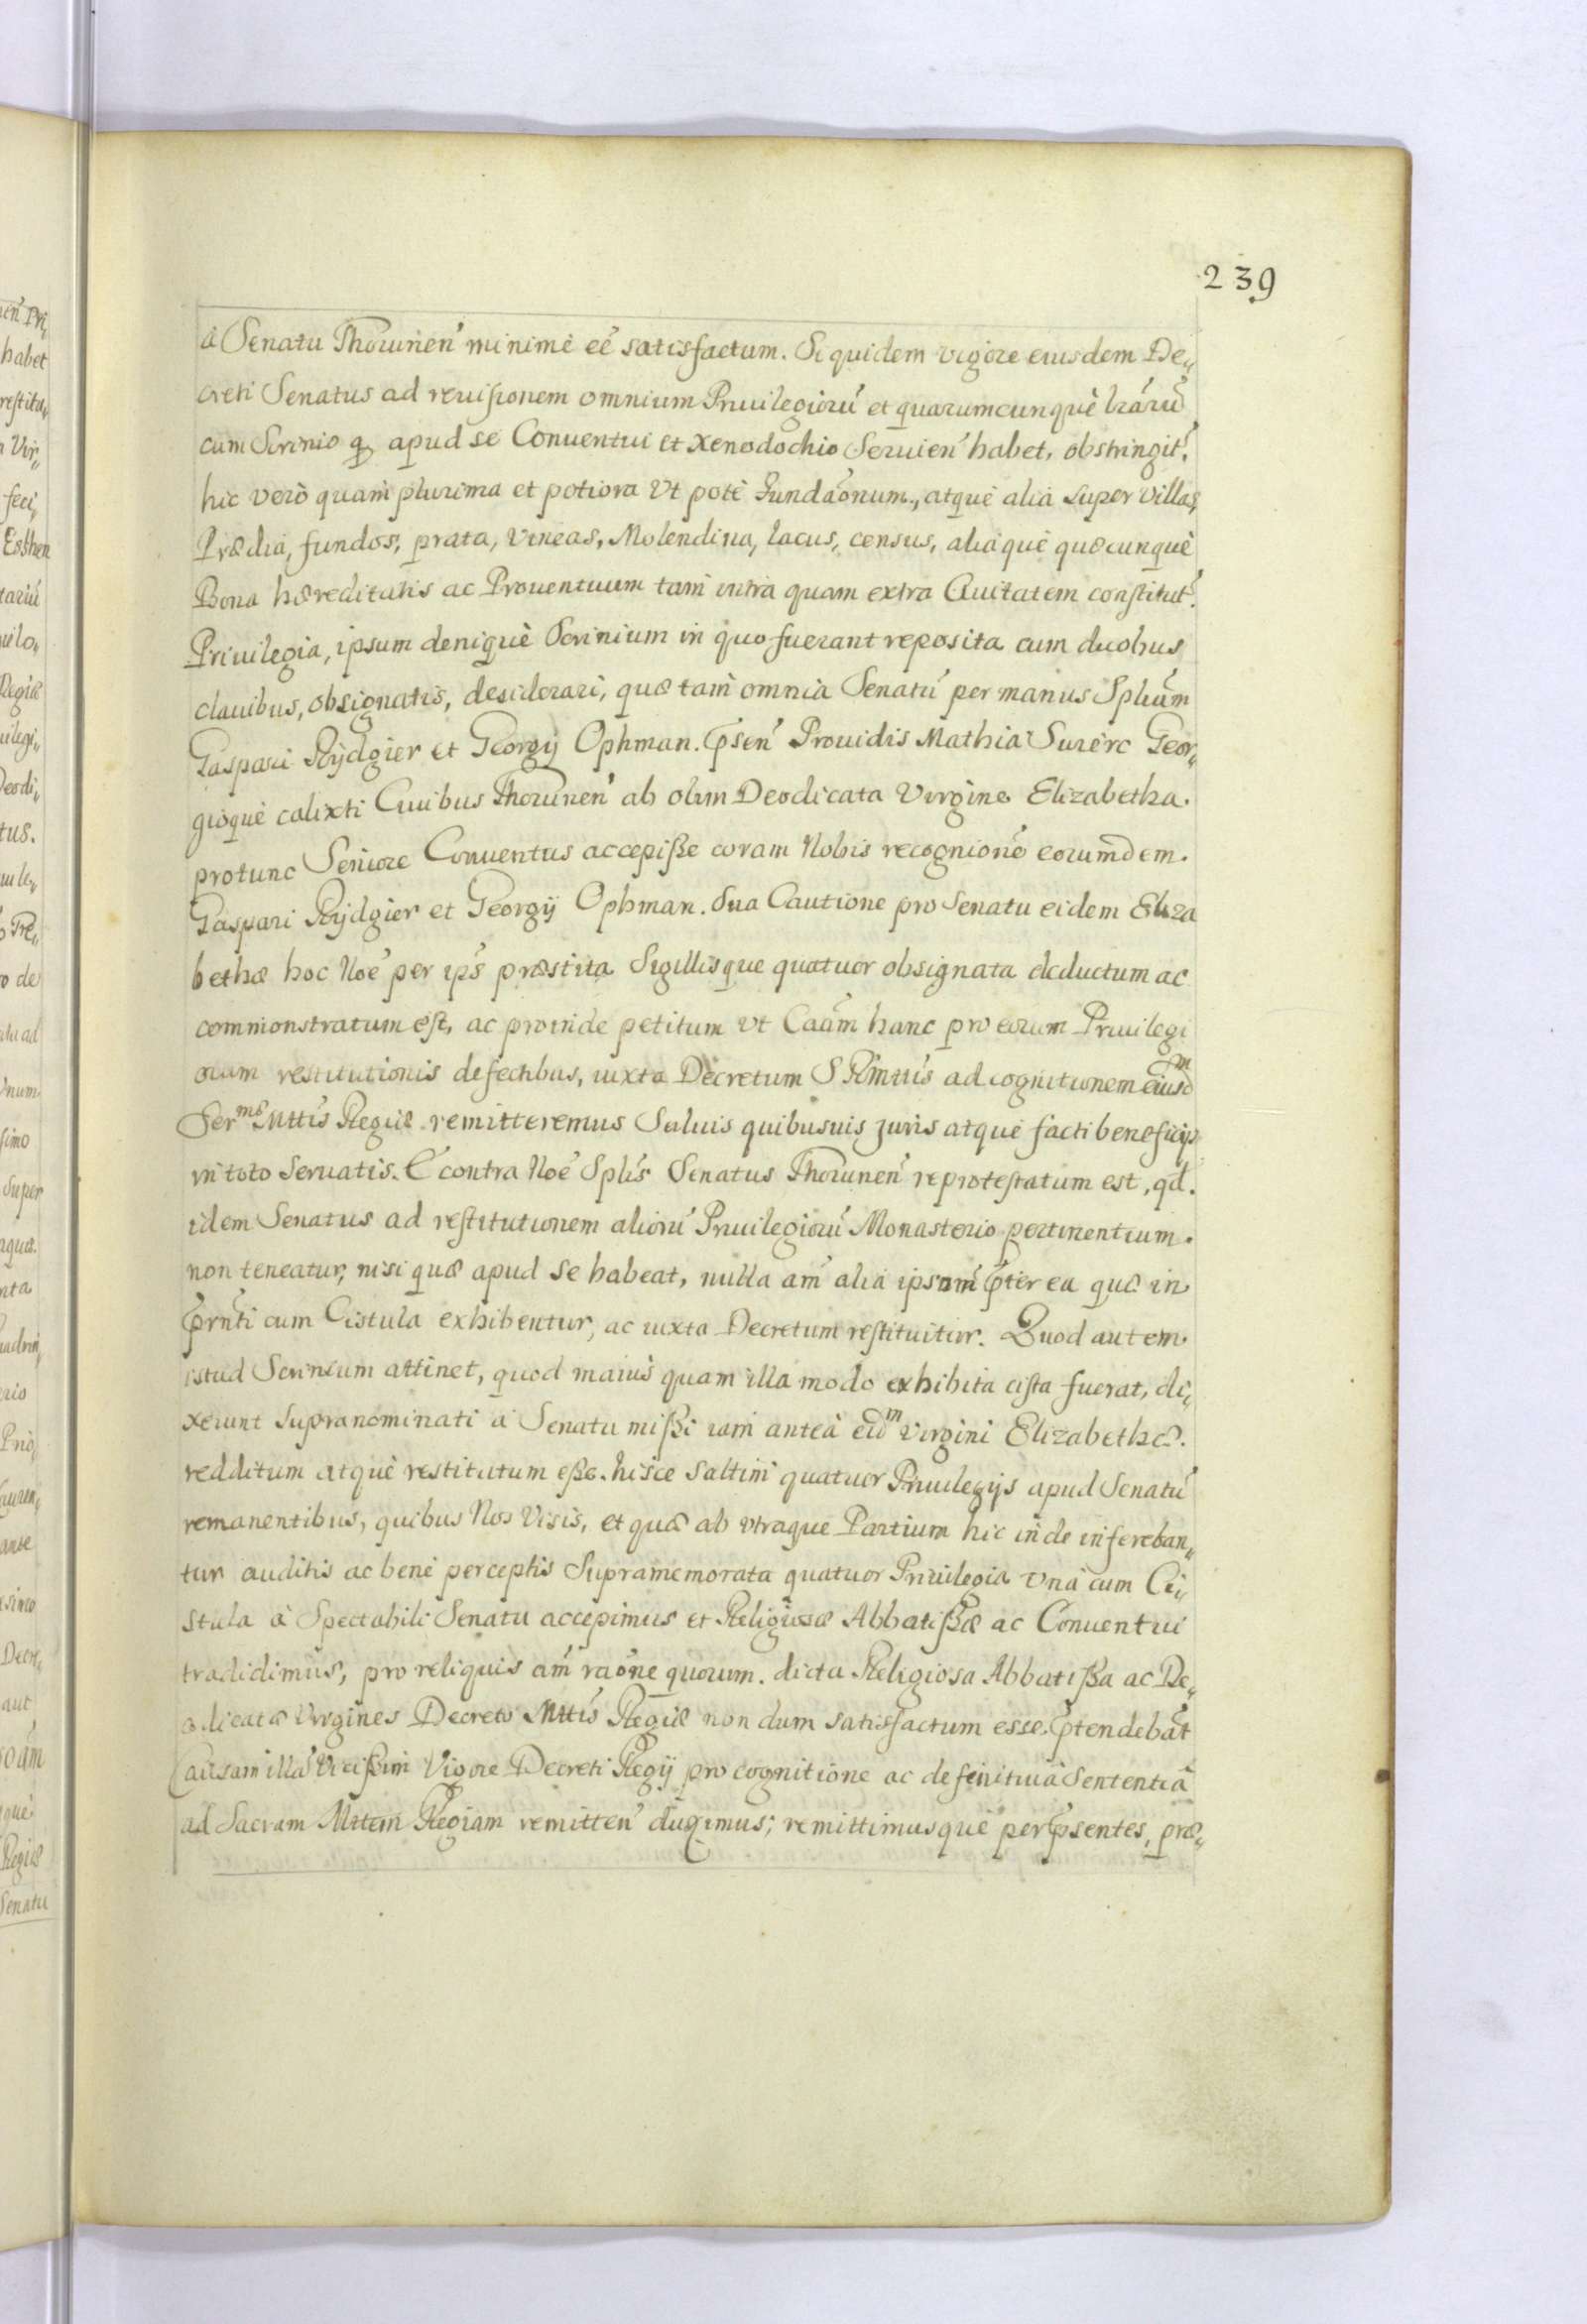 239
à Senatu Thorunen̄ minimè eē satisfactum. Siquidem vigore eiusdem De„
creti Senatus ad reuisionem omnium Priuilegiorū et quarumcunquè lrārū
cum Scrinio q̨ apud se Conuentui et Xenodochio Seruien̄ habet, obstringit̄.
hic verò quam plurima et potiora Vt potè Fundaōnum, atquè alia super Villas,
Prædia, fundos, prata, Vineas, Molendina, lacus, census, aliaquè quæcunquè
Bona hæreditatis ac Prouentuum tam intra quam extra Ciuitatem constitut̄.
Priuilegia, ipsum deniquè Scrinium in quo fuerant reposita cum duobus
clauibus, obsignatis, desiderari, quæ tam̄ omnia Senatū per manus Spliūm
Gaspari Rÿdgier et Georgÿ Ophman. p̄sen̄ Prouidis Mathia Surerc Geor„
gioquè calixti Ciuibus Thorunen̄ ab olim Deodicata Virgine Elizabetha.
protunc Seniore Conuentus accepiße coram Nobis recognionē eorumdem.
Gaspari Rÿdgier et Georgÿ Ophman. Sua Cautione pro Senatu eidem Eliza
bethæ hoc Noē per ip̄s præstita Sigillisque quatuor obsignata deductum ac
commonstratum est, ac proinde petitum vt Caām hanc pro eorum Priuilegi
orum restitutionis defectibus, iuxta Decretum S Rm̄ttis ad cognitionem eiusdm
Sermæ Mttis Regiæ remitteremus Saluis quibusuis juris atque facti beneficijs
in toto Seruatis. E contra Noē Splis Senatus Thorunen̄ reprotestatum est, qd̄.
idem Senatus ad restitutionem aliorū Priuilegiorū Monasterio pertinentium.
non teneatur, nisi quæ apud se habeat, nulla am̄ alia ipsum p̄ter ea quæ in
p̄rnti cum Cistula exhibentur, ac iuxta Decretum restituitur. Quod autem
istud Scrinium attinet, quod maius quam illa modo exhibita cista fuerat, di„
xerunt supranominati à Senatu mißi iam anteà eidm Virgini Elizabethæ.
redditum atquè restitutum eße. hisce saltim quatuor Priuilegijs apud Senatū
remanentibus, quibus Nos Visis, et quæ ab vtraque Partium hic inde infereban„
tur auditis ac benè perceptis Supramemorata quatuor Priuilegia Vnà cum Ci„
stula à Spectabili Senatu accepimus et Religiosæ Abbatißæ ac Conuentui
tradidimus, pro reliquis am̄ raōne quorum. dicta Religiosa Abbatißa ac De„
odicatæ Virgines Decreto Mttis Regiæ non dum satisfactum esse p̄tendebāt
Causam illā Vicißim Vigore Decreti Regÿ pro cognitione ac definitiuà Sententià
ad Sacram Mttem Regiam remitten̄ duximus; remittimusquè per p̄sentes, præ„